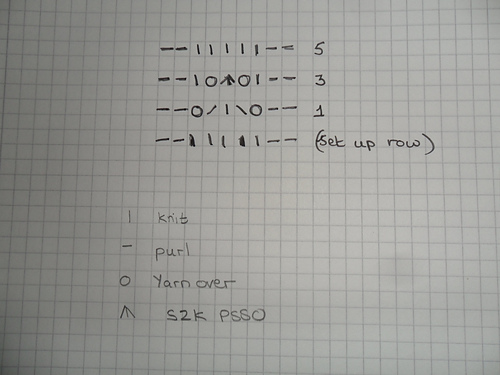 – – | | | | | – – 5
– – | O ⋀ O | – – 3
– – O / | \ O – – 1
– – | | | | | – – (Set up row)
| knit
– purl
O Yarn over
⋀ S2K PSSO